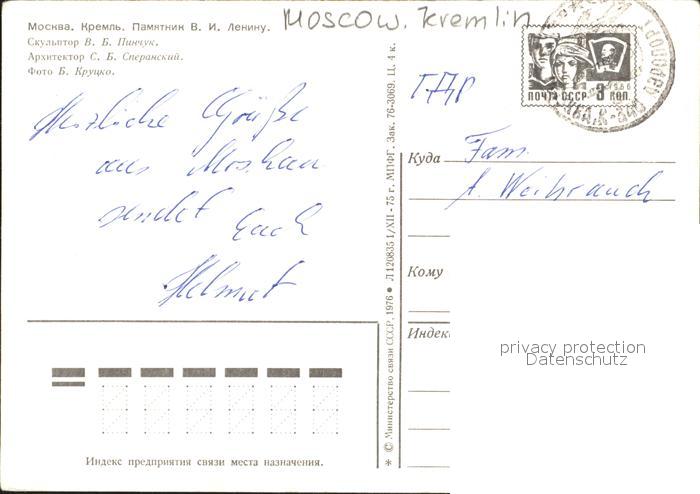 Moscow. Kremlin
Москва. Кремль. Памятник В. И. Ленину.
Скульптор В. Б. Пинчук.
Архитектор С. Б. Сперанский.
Фото Б. Круцко.
ПОЧТА СССР 3 КОП.
1966
Herzliche Grüße
aus Moskau
sendet Euch
Helmut
Куда
Fam.
A. Weihrauch
Кому
Индекс
privacy protection
Datenschutz
© Министерство связи СССР, 1976 ● Л 120835 1/XII - 75 г. МПФГ. Зак. 76-3069. Ц. 4 к.
Индекс предприятия связи места назначения.